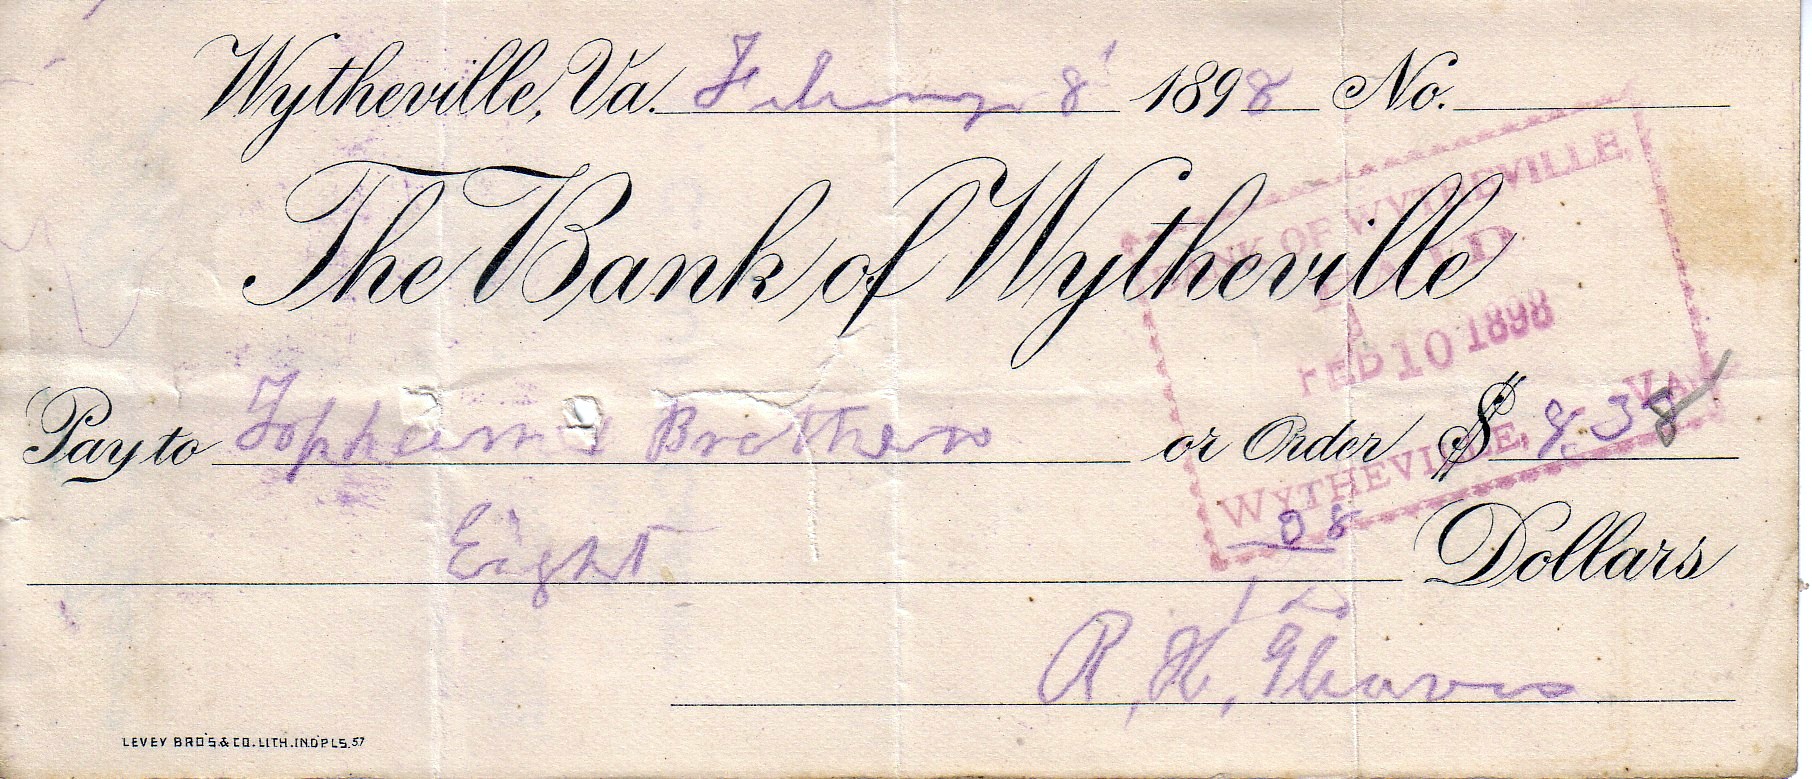 Wytheville, Va. February 8' 1898 No.
The Bank of Wytheville
BANK OF WYTHEVILLE,
PAID
FEB 10 1898
WYTHEVILLE, VA.
Pay to Topham & Brothers or Order $ 8.38
Eight 38 Dollars
R. H. Gleaves
LEVEY BRO'S. & CO. LITH. IND'PLS. 57